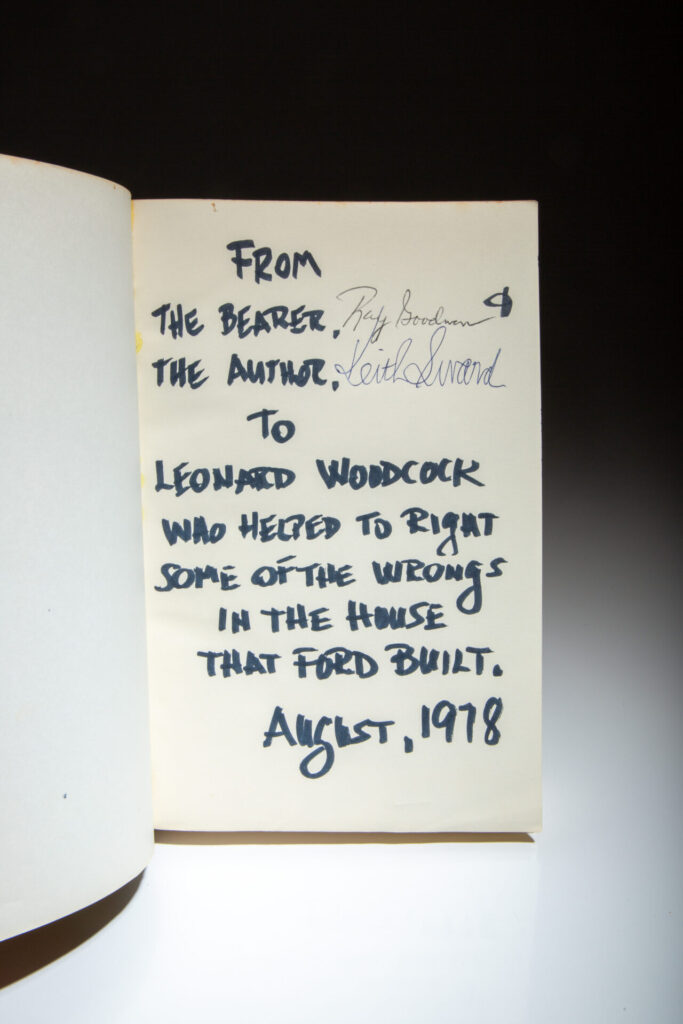 FROM
THE BEARER, Ray Goodman &
THE AUTHOR, Keith Sward
TO
LEONARD WOODCOCK
WHO HELPED TO RIGHT
SOME OF THE WRONGS
IN THE HOUSE
THAT FORD BUILT.
AUGUST, 1978